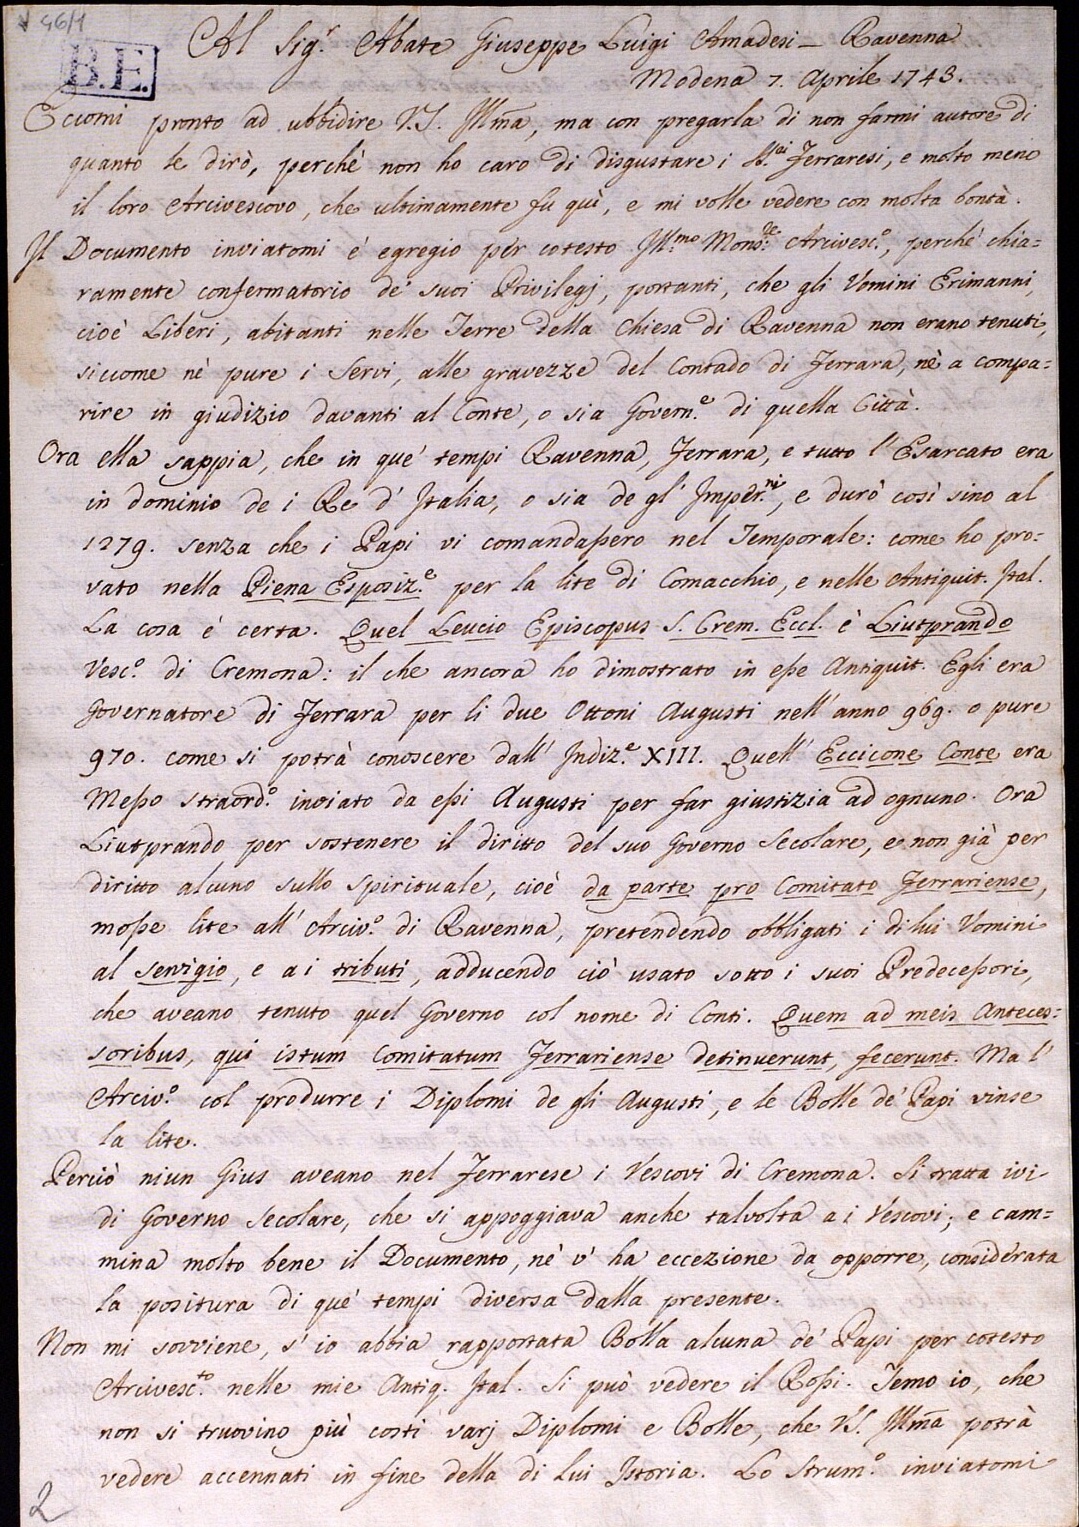 46/1
B.E.
Al Sig.r Abate Giuseppe Luigi Amadesi — Ravenna
Modena 7. Aprile 1743.
Eccomi pronto ad ubbidire V.S. Illma, ma con pregarla di non farmi autore di
quanto le dirò, perchè non ho caro di disgustare i S.ri Ferraresi, e molto meno
il loro Arcivescovo, che ultimamente fu quì, e mi volle vedere con molta bontà.
Il Documento inviatomi è egregio per cotesto Ill.mo Mons.re Arcivesc.o, perchè chia=
ramente confermatorio de' suoi Privilegj, portanti, che gli Uomini Erimanni,
cioè Liberi, abitanti nelle Terre della Chiesa di Ravenna non erano tenuti,
siccome nè pure i Servi, alle gravezze del Contado di Ferrara, nè a compa=
rire in giudizio davanti al Conte, o sia Govern.e di quella Città.
Ora ella sappia, che in que' tempi Ravenna, Ferrara, e tutto l'Esarcato era
in dominio de i Re d'Italia, o sia de gl'Imper.ri, e durò così sino al
1279. senza che i Papi vi comandassero nel Temporale: come ho pro=
vato nella Piena Esposiz.e per la lite di Comacchio, e nelle Antiquit. Ital.
La cosa è certa. Quel Leucio Episcopus S. Crem. Eccl. è Liutprando
Vesc.o di Cremona: il che ancora ho dimostrato in esse Antiquit. Egli era
Governatore di Ferrara per li due Ottoni Augusti nell'anno 969. o pure
970. come si potrà conoscere dall'Indiz.e XIII. Quell'Eccicone Conte era
Messo straord.o inviato da essi Augusti per far giustizia ad ognuno. Ora
Liutprando per sostenere il diritto del suo Governo Secolare, e non già per
diritto alcuno sullo spirituale, cioè da parte pro Comitato Ferrariense,
mosse lite all'Arciv.o di Ravenna, pretendendo obbligati i di lui Uomini
al servigio, e a i tributi, adducendo ciò usato sotto i suoi Predecessori,
che aveano tenuto quel Governo col nome di Conti. Quem ad meis Anteces=
soribus, qui istum Comitatum Ferrariense detinuerunt, fecerunt. Ma l'
Arciv.o col produrre i Diplomi de gli Augusti, e le Bolle de' Papi vinse
la lite.
Perciò niun Gius aveano nel Ferrarese i Vescovi di Cremona. Si tratta ivi
di Governo Secolare, che si appoggiava anche talvolta a i Vescovi; e cam=
mina molto bene il Documento, nè v'ha eccezione da opporre, considerata
la positura di que' tempi diversa dalla presente.
Non mi sovviene, s'io abbia rapportata Bolla alcuna de' Papi per cotesto
Arcivesc.to nelle mie Antiq. Ital. Si può vedere il Rossi. Temo io, che
non si truovino più costì varj Diplomi e Bolle, che V.S. Illma potrà
vedere accennati in fine della di lui Istoria. Lo Strum.o inviatomi
2